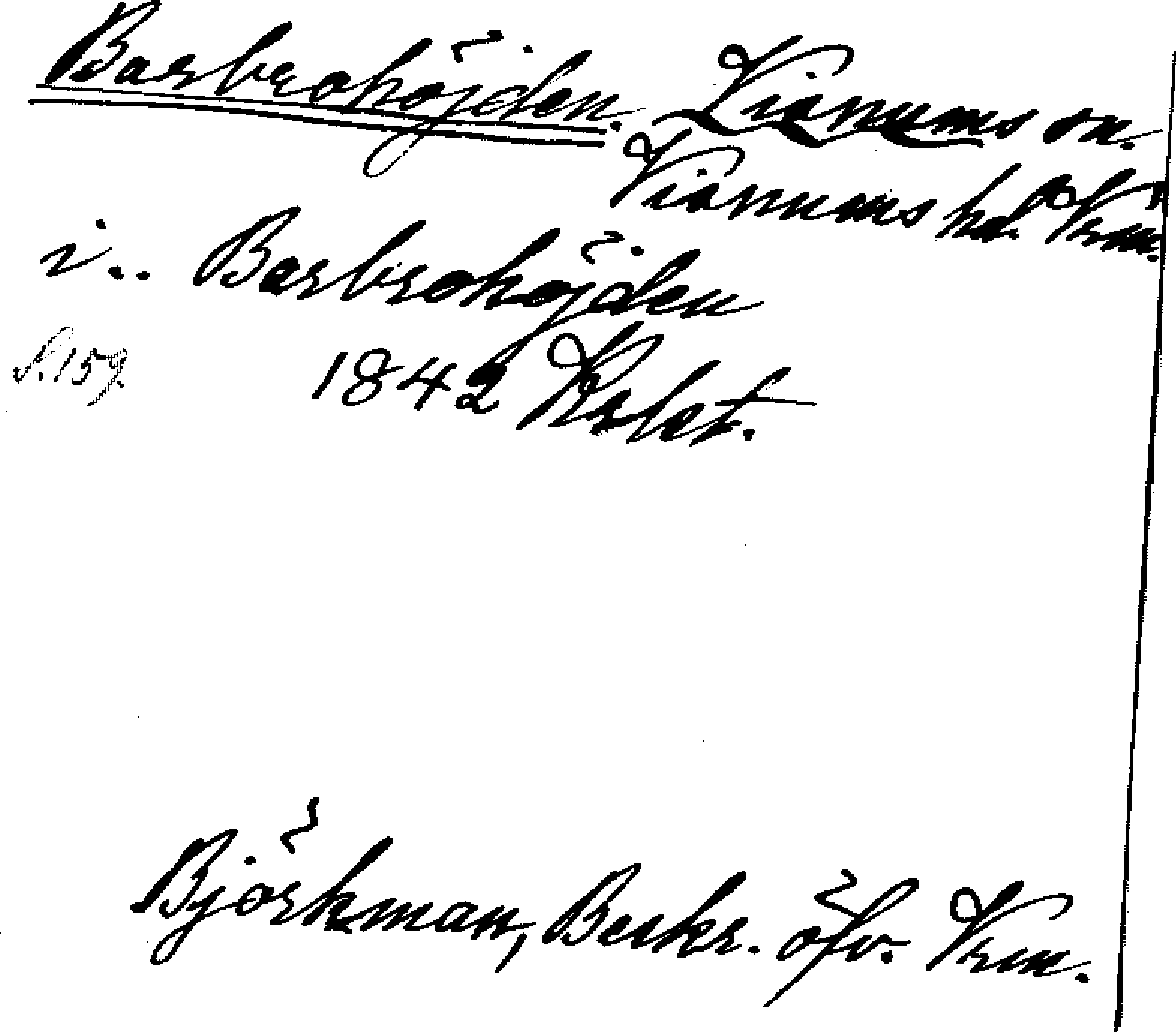 Barbrohöjden. Visnums sn.
Visnums hd. Vrm.
i.. Barbrohöjden
S. 159. 1842
Björkman, Beskr. öfv. Vrm.